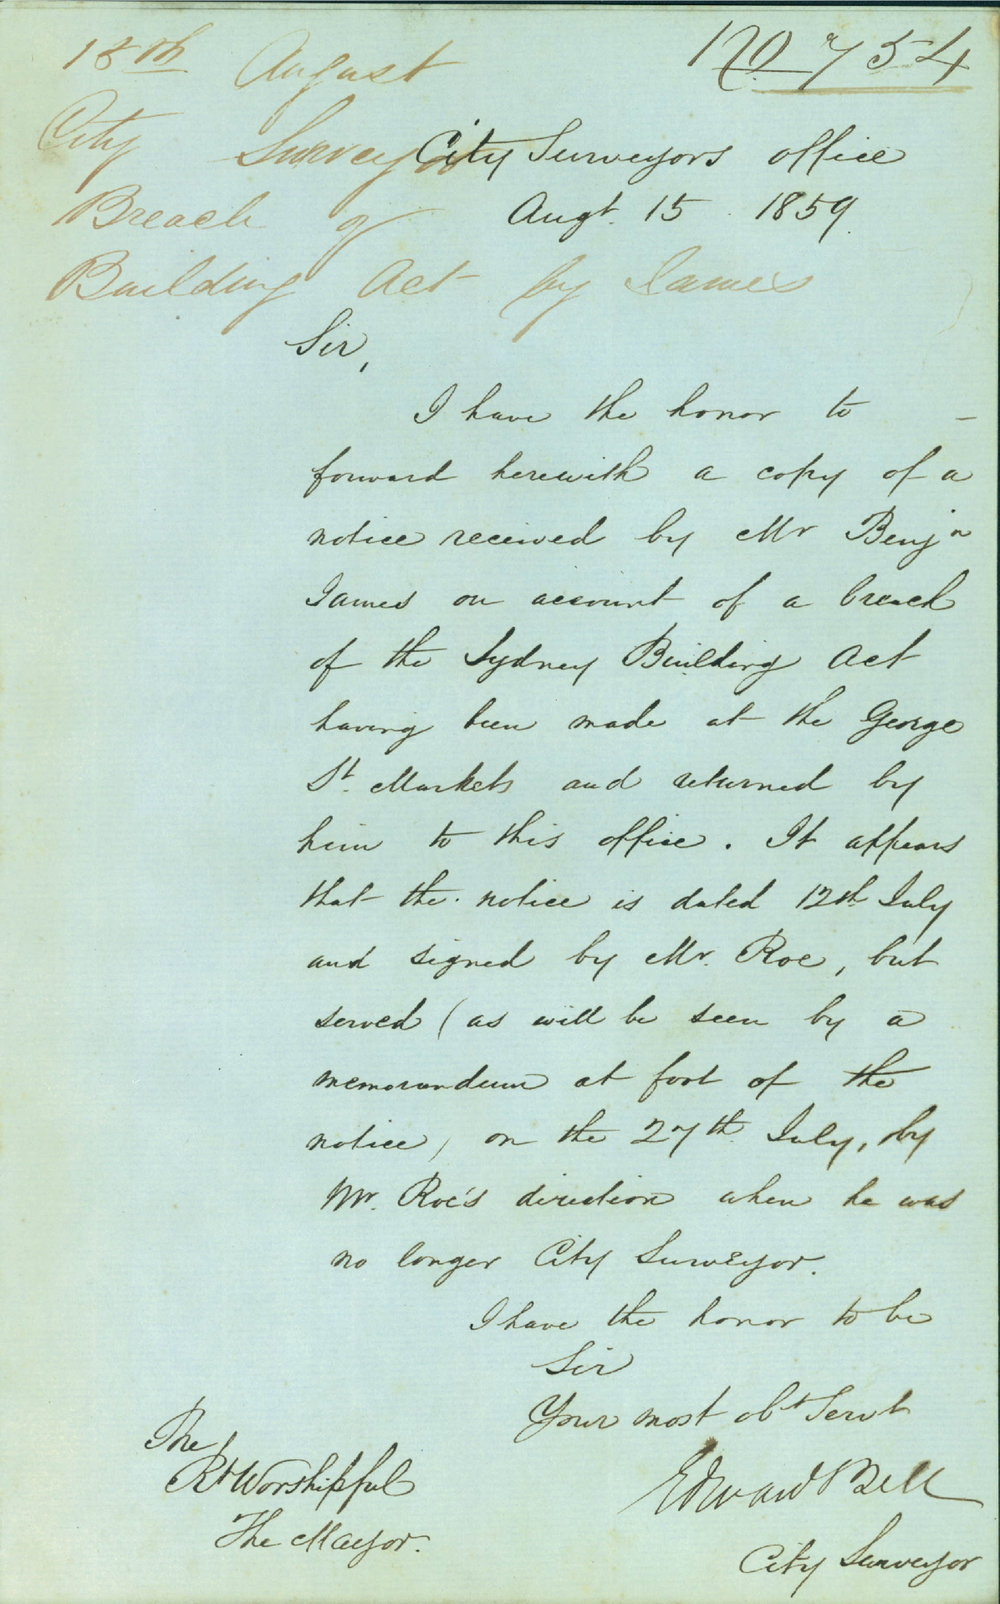 15th August
No 754
City Surveyor
Breach of
Building Act by James
City Surveyors office
Augt. 15. 1859.
Sir,
I have the honor to
forward herewith a copy of a
notice received by Mr Benjn
James on account of a breach
of the Sydney Building Act
having been made at the George
St. Markets and returned by
him to this office. It appears
that the notice is dated 12th July
and signed by Mr. Roe, but
served (as will be seen by a
memorandum at foot of the
notice) on the 27th July, by
Mr. Roe's direction when he was
no longer City Surveyor.
I have the honor to be
Sir
Your most obt Servt
Edward Bell
City Surveyor
The
Rt Worshipful
The Mayor.